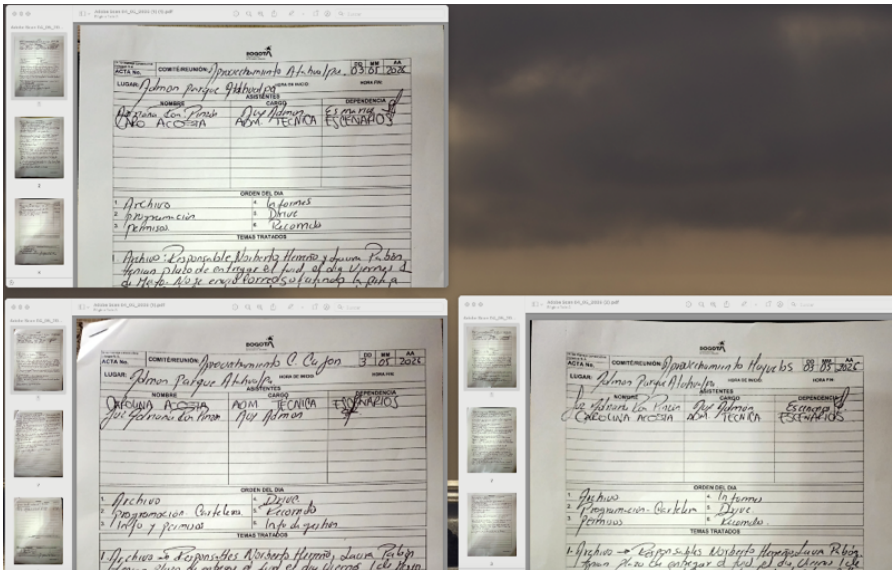 BOGOTÁ
ACTA No. COMITÉ/REUNIÓN: Aprovechamiento Atahualpa. DD MM AA
03 05 2026
LUGAR: Admon parque Atahualpa HORA DE INICIO: HORA FIN:
ASISTENTES
NOMBRE CARGO DEPENDENCIA
Adriana Con. Pinzón Aux Admon
CARO ACOSTA ADM TECNICA ESCENARIOS
ORDEN DEL DIA
1. Archivo 4. Informes
2. programación 5. Drive
3. permisos 6. Recorrido
TEMAS TRATADOS
1. Archivo: Responsable, Norberto Herreño y Laura Pabón,
tenian plazo de entregar el fuid, el dia Viernes 1
BOGOTÁ
ACTA No. COMITÉ/REUNIÓN: Aprovechamiento C. Cajon DD MM AA
3 05 2026
LUGAR: Admon Parque HORA DE INICIO: HORA FIN:
ASISTENTES
NOMBRE CARGO DEPENDENCIA
CAROLINA ACOSTA ADM TECNICA ESCENARIOS
Luz Adriana Con Pinzon Aux Admon
ORDEN DEL DIA
1. Archivo 4. Drive
2. Programación. Cartelera 5. Recorrido
3. Info y permisos 6. Info de gestion
TEMAS TRATADOS
1. Archivo → Responsables Norberto Herreño, Laura Pabón
tenian plazo de entregar el fuid el dia Viernes 1 de
BOGOTÁ
ACTA No. COMITÉ/REUNIÓN: Aprovechamiento Hayuelos DD MM AA
03 05 2026
LUGAR: Admon Parque Atahualpa HORA DE INICIO: HORA FIN:
ASISTENTES
NOMBRE CARGO DEPENDENCIA
Luz Adriana Con Pinzon Aux Admon Escenarios
CAROLINA ACOSTA ADM TECNICA ESCENARIOS
ORDEN DEL DIA
1. Archivo 4. Informes
2. Programación. Cartelera 5. Drive
3. Permisos 6. Recorrido.
TEMAS TRATADOS
1. Archivo → Responsables Norberto Herreño, Laura Pabón
tenian plazo de entregar el fuid el dia, Viernes 1 de